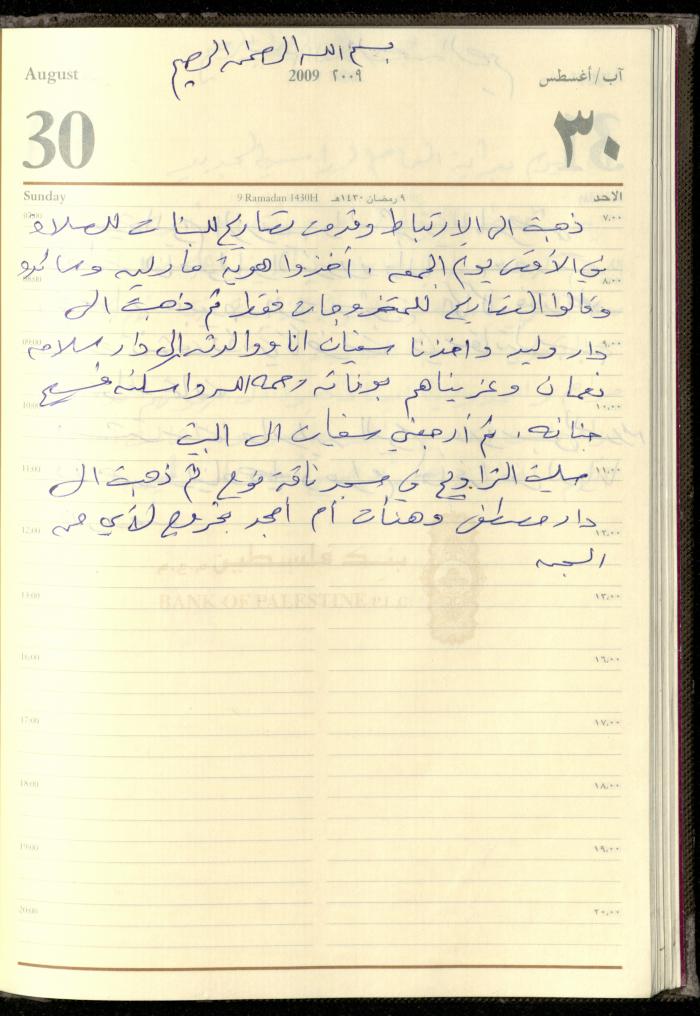 بسم الله الرحمن الرحيم
August
2009 ٢٠٠٩
آب/أغسطس
30
٣٠
Sunday
9 Ramadan 1430H
٩ رمضان ١٤٣٠هـ
الاحد
ذهبت الى الارتباط وقدمت تصاريح للبنات للصلاة
في الأقصى يوم الجمعه، أخذوا هوية مارلين
وقالوا التصاريح للمتزوجات فقط ثم ذهبت الى
دار وليد وأخذنا سفيان انا ووالدته إلى دار سلامه
نعمان وعزيناهم بوفاته رحمه الله واسكنه فسيح
جنانه، ثم أرجعني سفيان الى البيت
صليت التراويح في مسجد ناقة نوح ثم ذهبت الى
دار مصطفى وهنأت أم امجد بخروج لأي من
السجن
07:00
٧,٠٠
08:00
٨,٠٠
09:00
٩,٠٠
10:00
١٠,٠٠
11:00
١١,٠٠
12:00
١٢,٠٠
بنك فلسطين م.ع.م
BANK OF PALESTINE P.L.C
13:00
١٣,٠٠
16:00
١٦,٠٠
17:00
١٧,٠٠
18:00
١٨,٠٠
19:00
١٩,٠٠
20:00
٢٠,٠٠